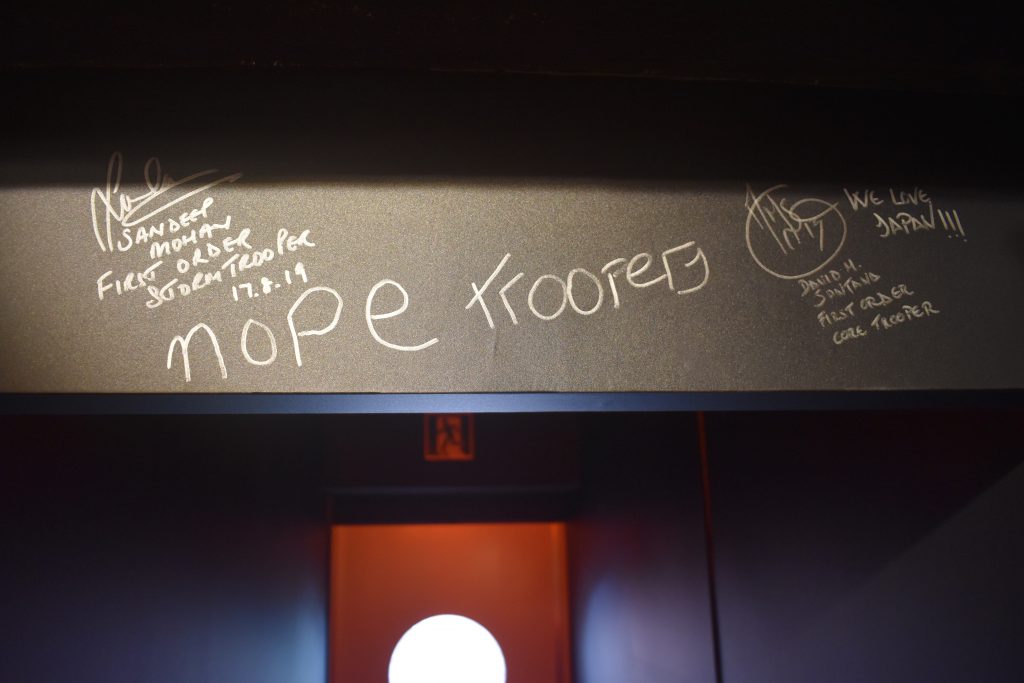 SANDEEP
MOHAN
FIRST ORDER
STORMTROOPER
17.8.19
nope trooperz
WE LOVE
JAPAN!!!
DAVID M.
SANTANA
FIRST ORDER
CORE TROOPER